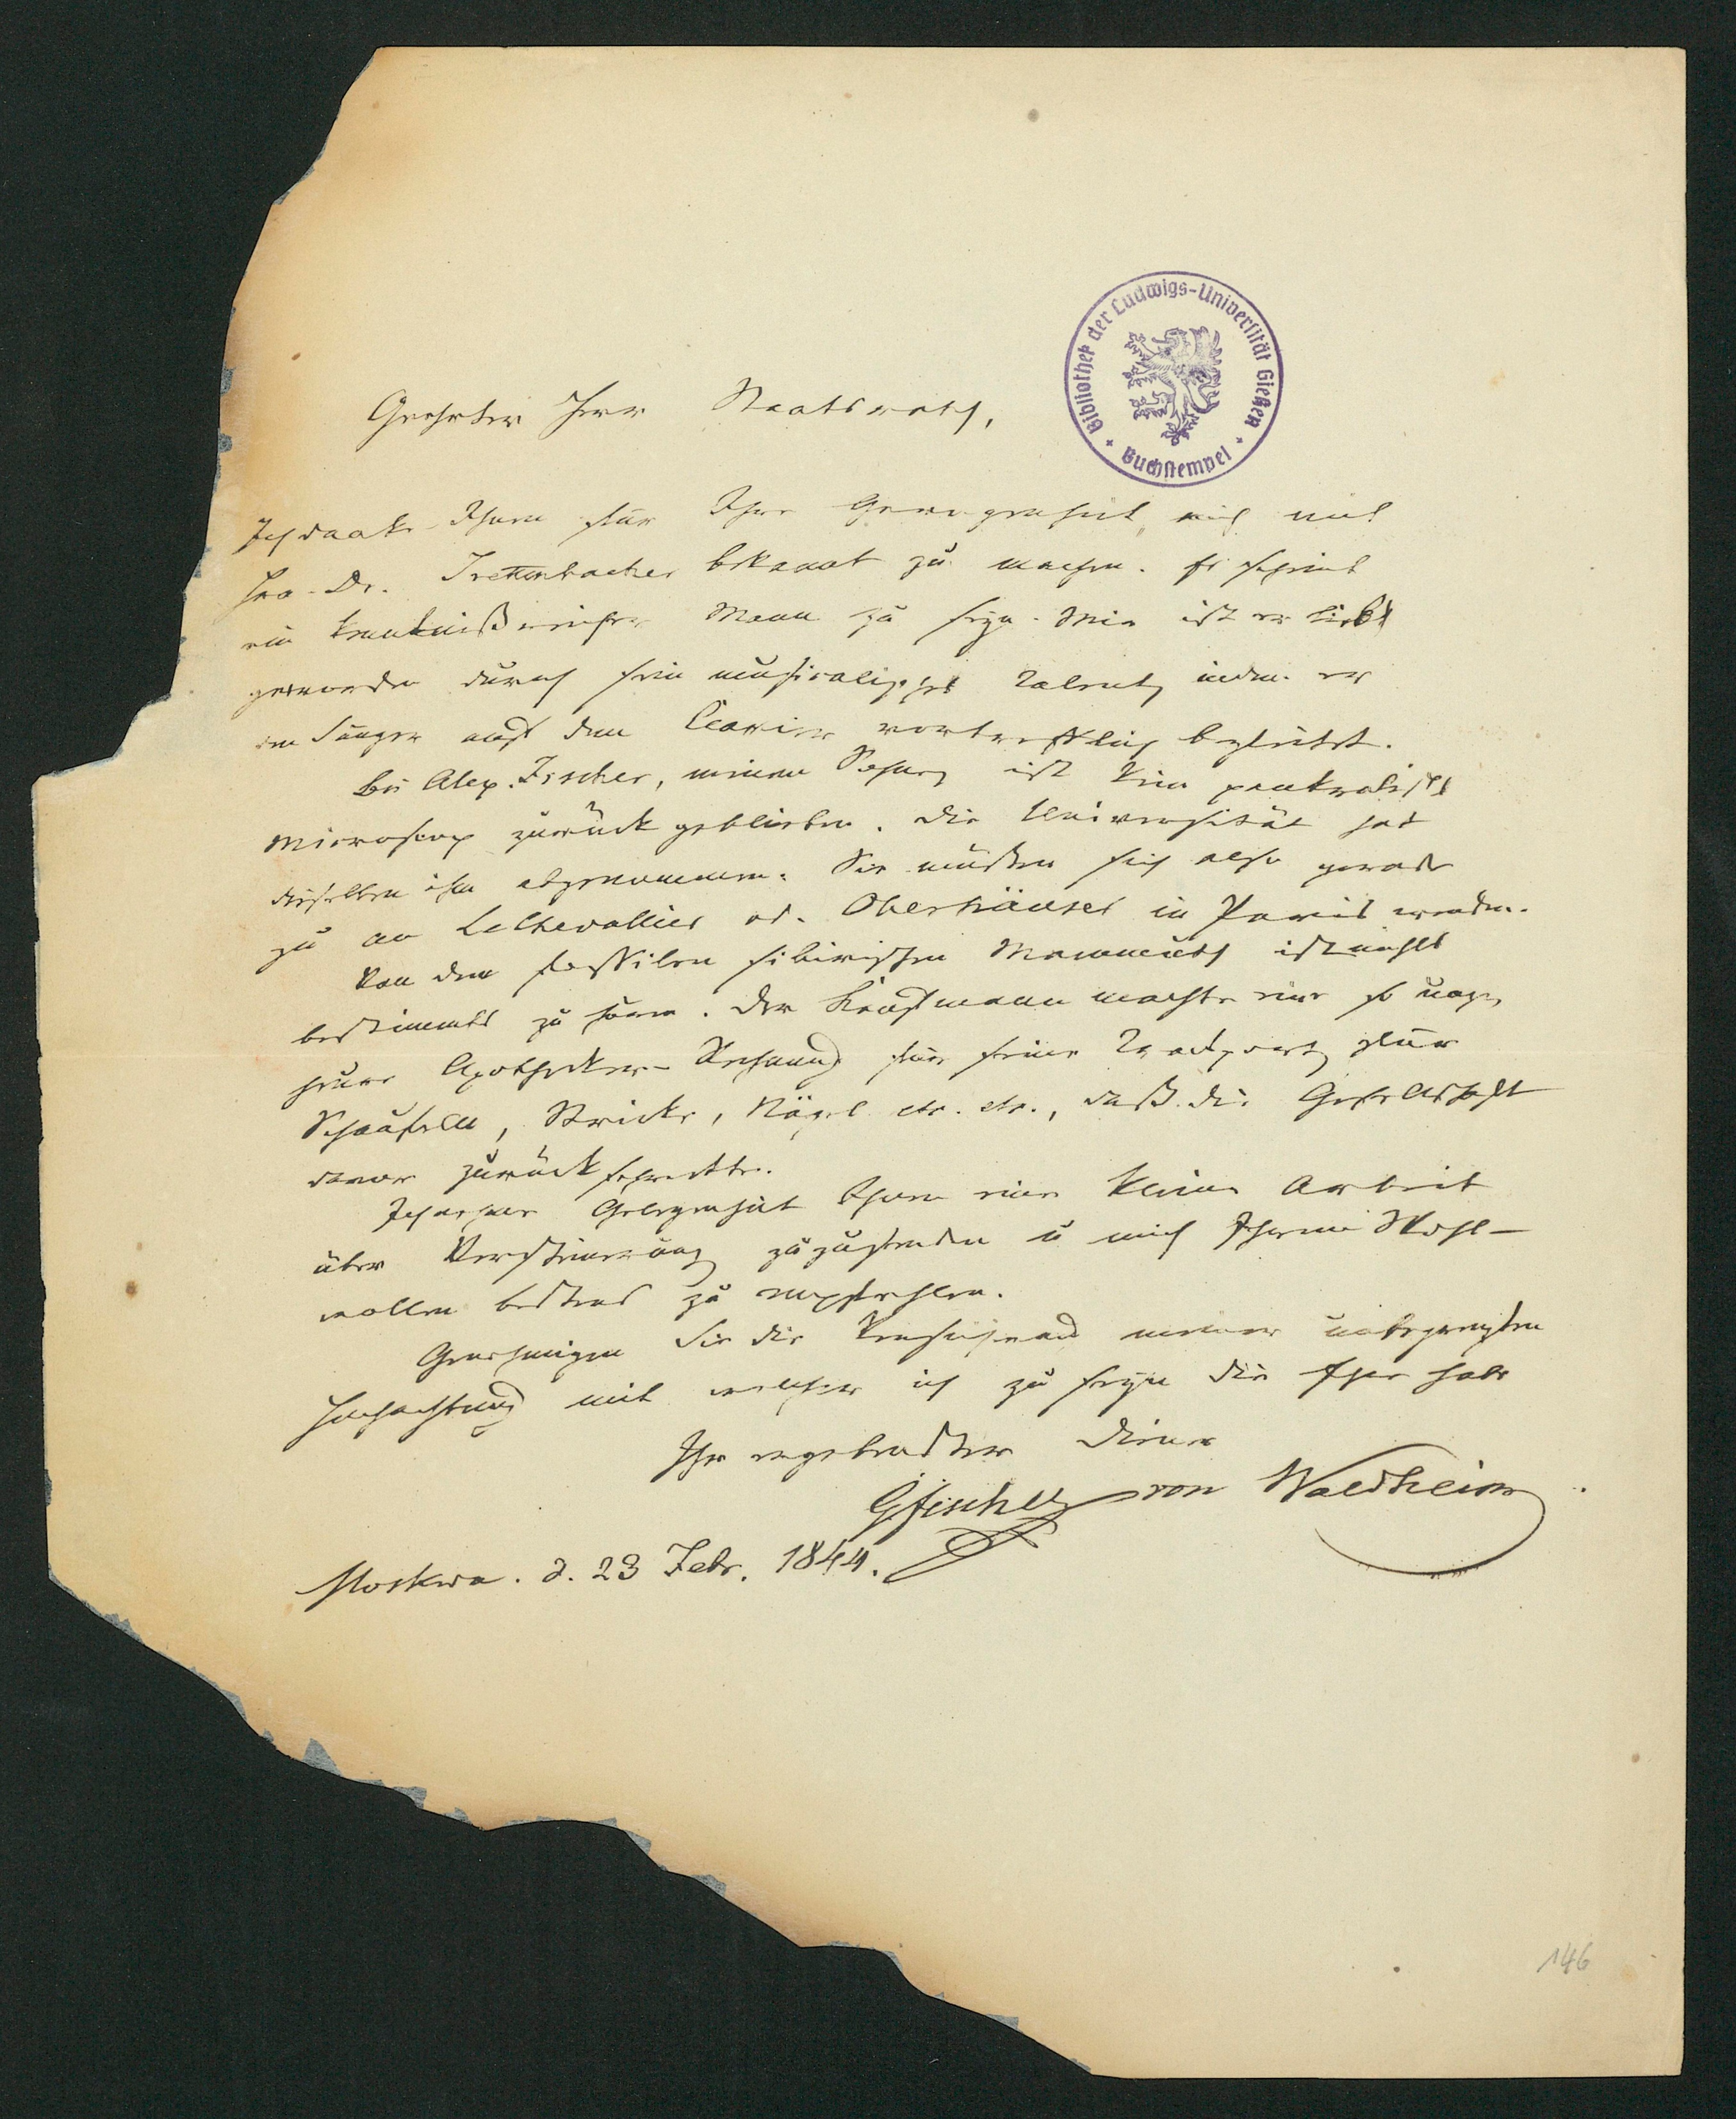 Bibliothek der Ludwigs-Universität Gießen
Buchstempel
Geehrter Herr Staatsrath,
Ich danke Ihnen für Ihre Gewogenheit, mich mit
Hrn. Dr. bekannt zu machen. Er scheint
ein kenntnißreicher Mann zu seyn. Mir ist er lieb
geworden durch sein musicalisches Talent, indem er
den Sänger auf dem Clavier vortrefflich begleitet.
Bei Alex. Fischer, meinem Sohne, ist kein
Microscop zurück geblieben. Die Universität hat
dieselben ihm abgenommen. Sie müssen sich also gerade
zu an LeChevallier od. Oberhäuser in Paris wenden.
Von dem fossilen sibirischen Mammuth ist nichts
bestimmtes zu hören. Der Kaufmann machte eine so unge
heure Apotheker-Rechnung für seine für
Schaufeln, Stricke, Nägel etc. etc., daß die Gesellschaft
davor zurückschreckte.
Gelegenheit Ihnen eine kleine Arbeit
über Versteinerung zuzusenden u mich Ihrem Wohl-
wollen bestens zu empfehlen.
Genehmigen Sie die Versicherung meiner unbegrenzten
Hochachtung mit welcher ich zu seyn die Ehre habe
Ihr ergebenster Diener
GFischer von Waldheim.
Moskwa. d. 23 Febr. 1844.
146